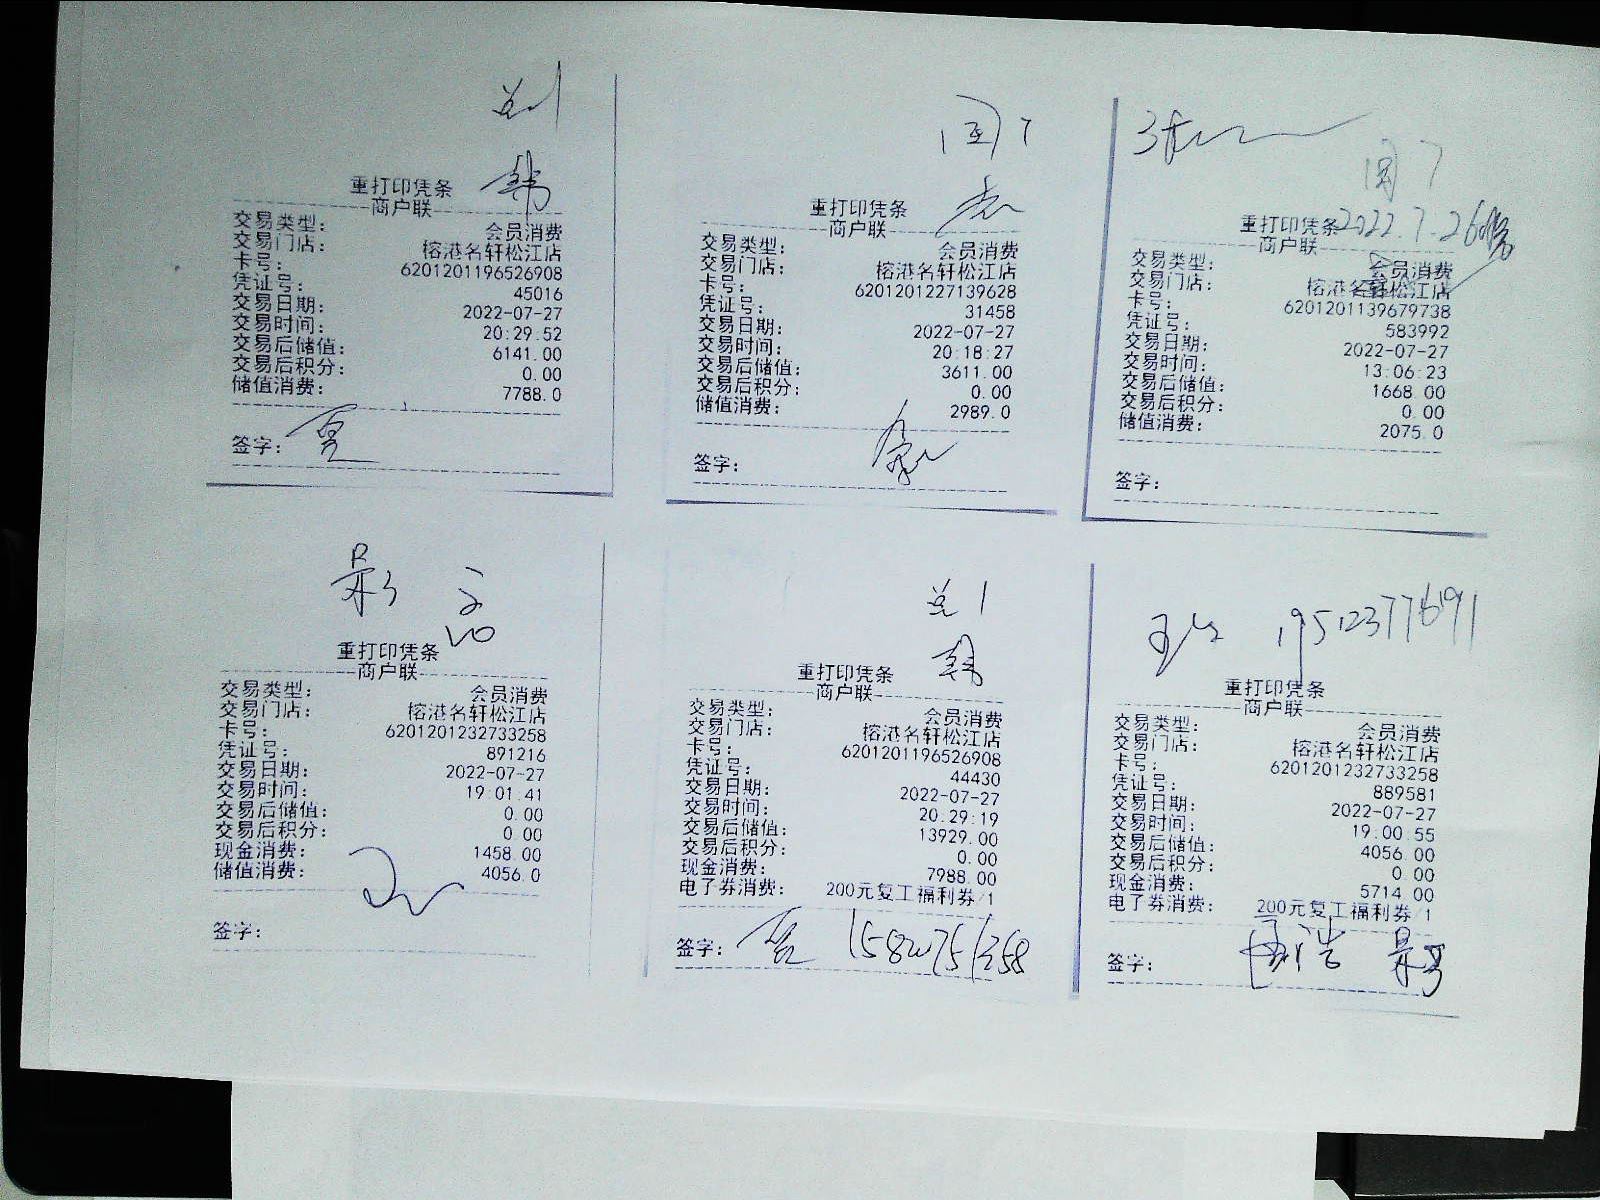 重打印凭条
商户联
交易类型： 会员消费
交易门店： 榕港名轩松江店
卡号： 6201201196526908
凭证号： 45016
交易日期： 2022-07-27
交易时间： 20:29:52
交易后储值： 6141.00
交易后积分： 0.00
储值消费： 7788.0
签字：
重打印凭条
商户联
交易类型： 会员消费
交易门店： 榕港名轩松江店
卡号： 6201201227139628
凭证号： 31458
交易日期： 2022-07-27
交易时间： 20:18:27
交易后储值： 3611.00
交易后积分： 0.00
储值消费： 2989.0
签字：
重打印凭条 2022.7.26
商户联
交易类型： 会员消费
交易门店： 榕港名轩松江店
卡号： 6201201139679738
凭证号： 583992
交易日期： 2022-07-27
交易时间： 13:06:23
交易后储值： 1668.00
交易后积分： 0.00
储值消费： 2075.0
签字：
重打印凭条
商户联
交易类型： 会员消费
交易门店： 榕港名轩松江店
卡号： 6201201232733258
凭证号： 891216
交易日期： 2022-07-27
交易时间： 19:01:41
交易后储值： 0.00
交易后积分： 0.00
现金消费： 1458.00
储值消费： 4056.0
签字：
重打印凭条
商户联
交易类型： 会员消费
交易门店： 榕港名轩松江店
卡号： 6201201196526908
凭证号： 44430
交易日期： 2022-07-27
交易时间： 20:29:19
交易后储值： 13929.00
交易后积分： 0.00
现金消费： 7988.00
电子券消费： 200元复工福利券/1
签字：
19512377691
重打印凭条
商户联
交易类型： 会员消费
交易门店： 榕港名轩松江店
卡号： 6201201232733258
凭证号： 889581
交易日期： 2022-07-27
交易时间： 19:00:55
交易后储值： 4056.00
交易后积分： 0.00
现金消费： 5714.00
电子券消费： 200元复工福利券/1
签字：